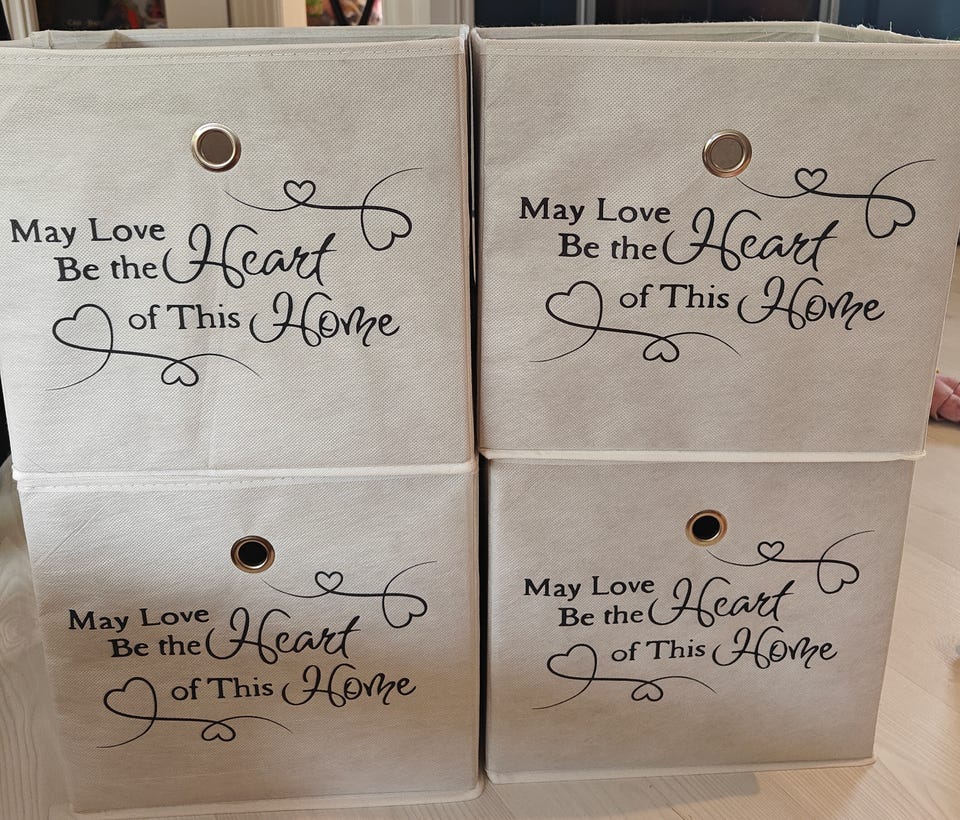 May Love
Be the Heart
of This Home
May Love
Be the Heart
of This Home
May Love
Be the Heart
of This Home
May Love
Be the Heart
of This Home